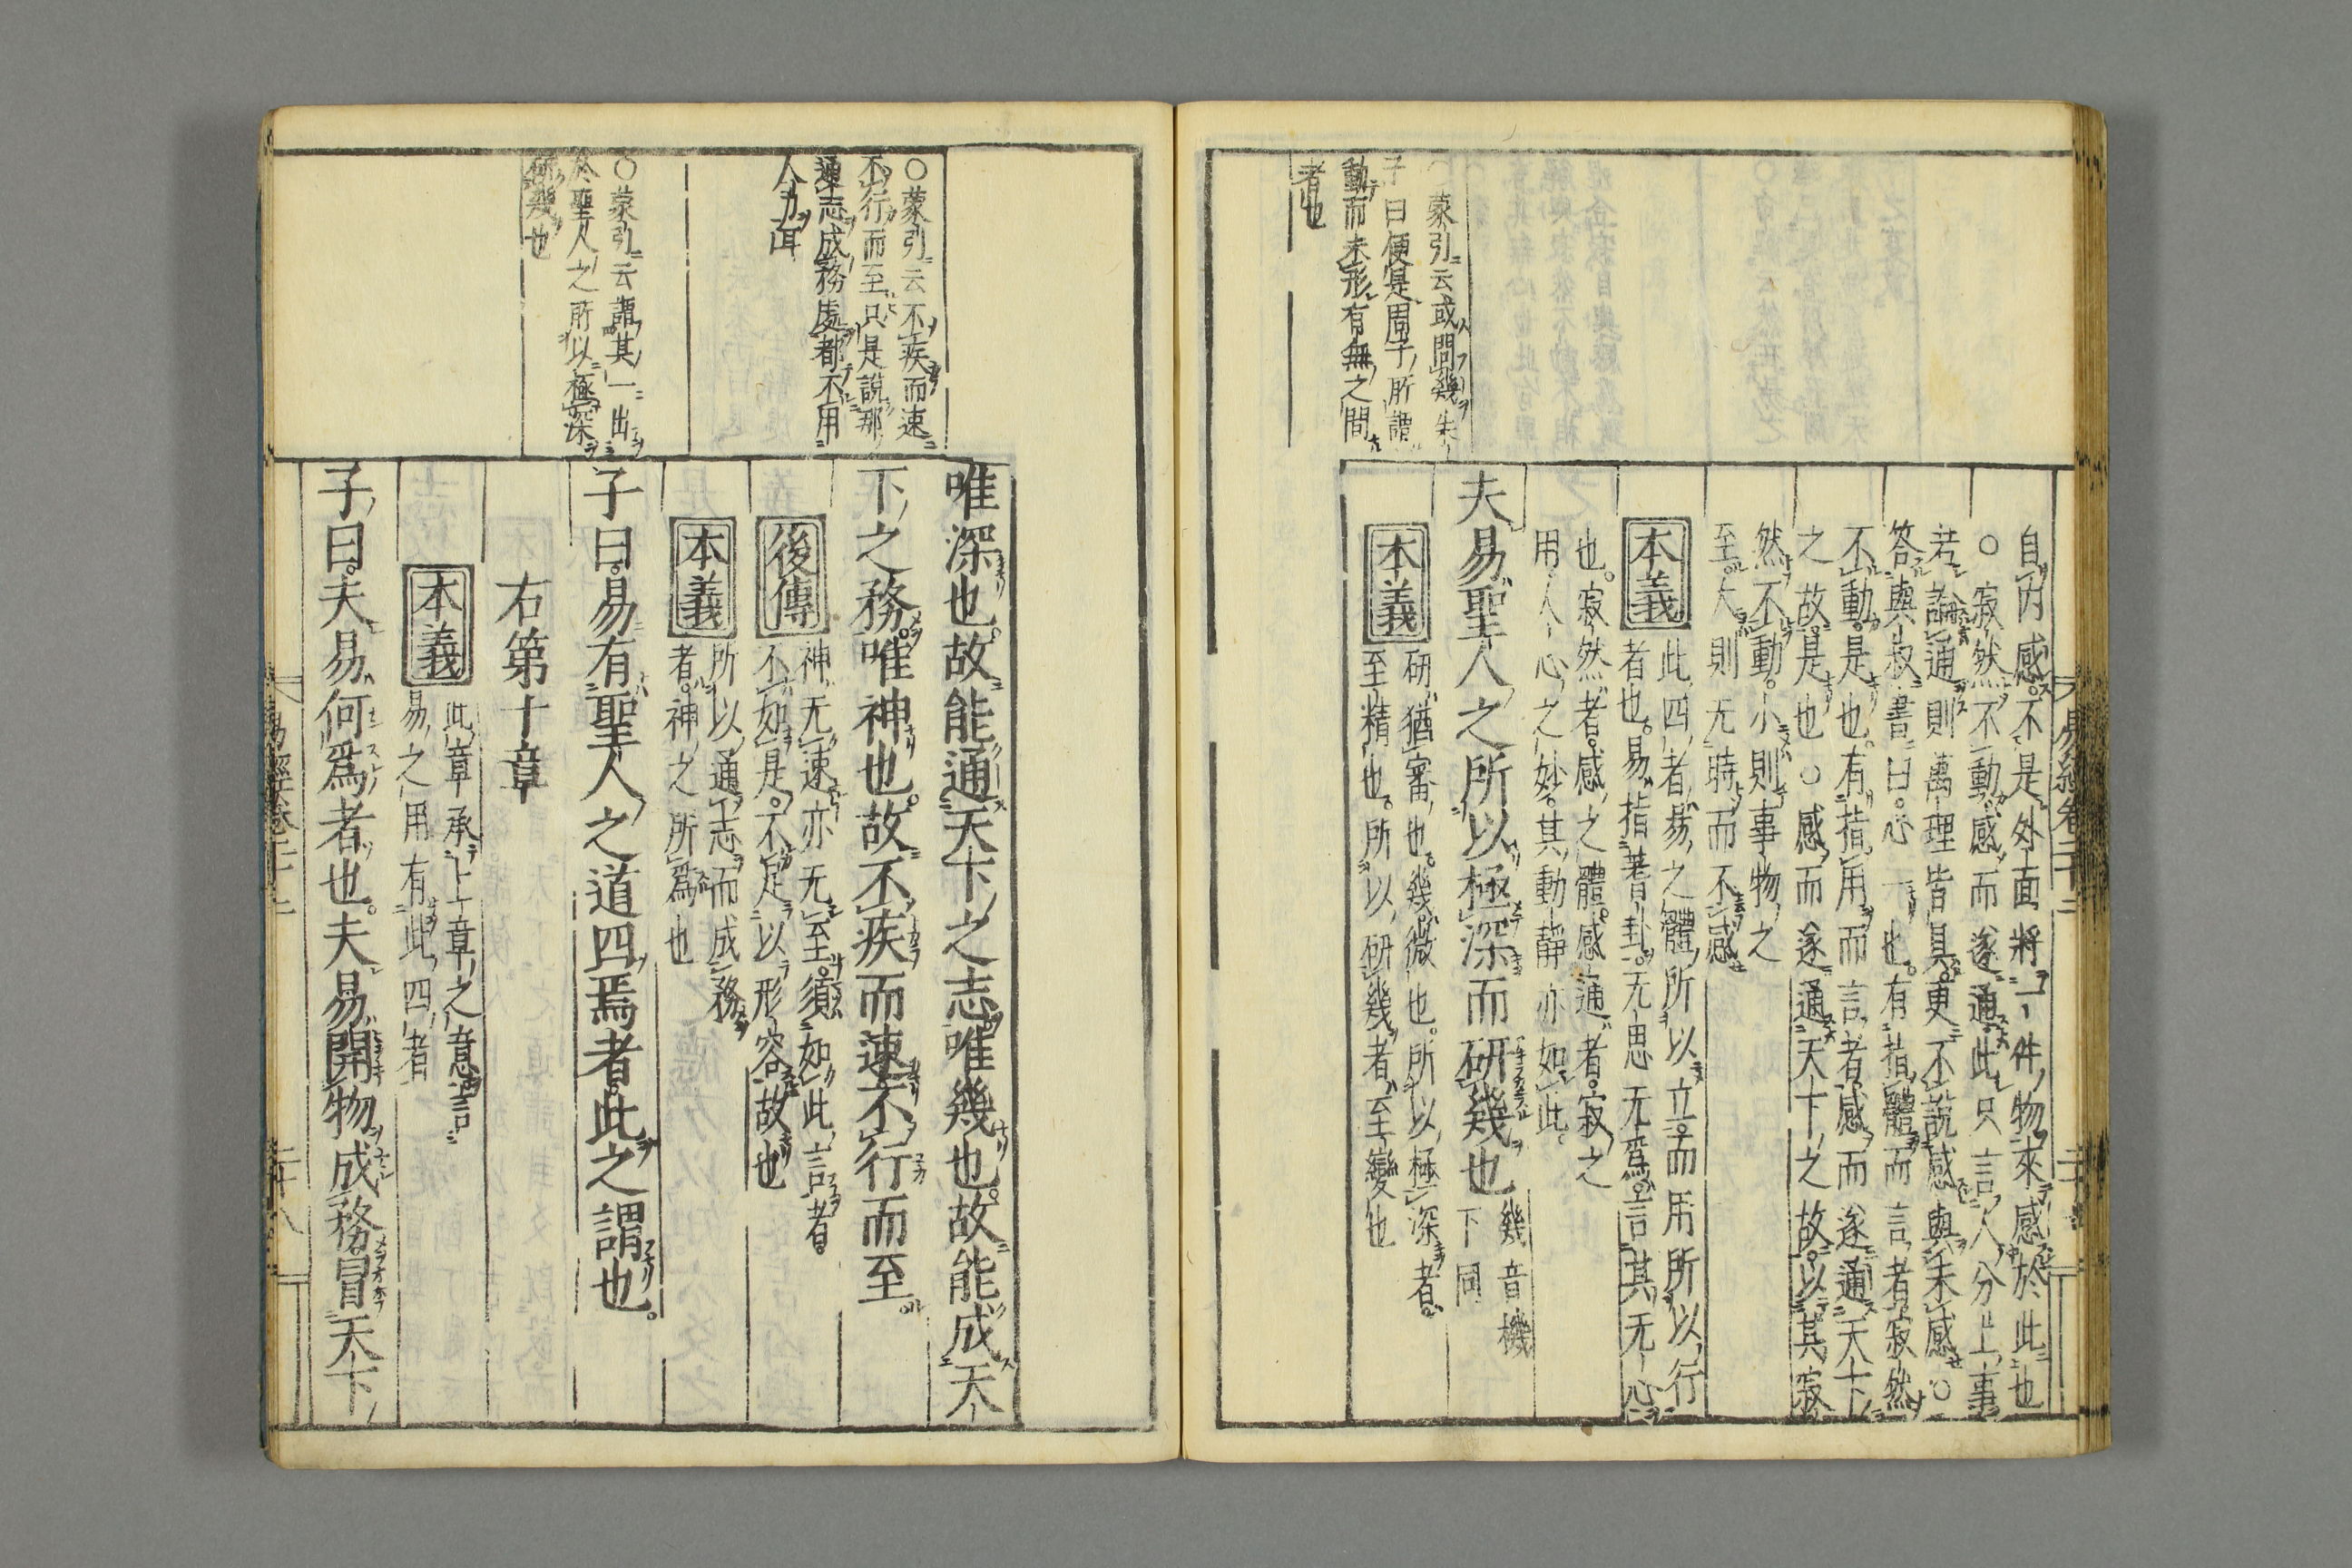 蒙引云或問幾朱
子曰便是周子所謂
動而未形有無之間
者也
自内感不是外面將一件物來感於此也
○寂然不動感而遂通此只言人分上事
若論通則萬理皆具更不說感與未感○
答與叔書曰心一也有指體而言者寂然
不動是也有指用而言者感而遂通天下
之故是也○感而遂通天下之故以其寂
然不動小則事物之
至大則无時而不感
本義
此四者易之體所以立而用所以行
者也易指蓍卦无思无爲言其无心
也寂然者感之體感通者寂之
用人心之妙其動靜亦如此
夫易聖人之所以極深而研幾也
幾音機
下同
本義
研猶審也幾微也所以極深者
至精也所以研幾者至變也
易經卷二十二
○蒙引云不疾而速
不行而至只是說那
通志成務處都不用
人力耳
○蒙引云謂其一出
於聖人之所以極深
研幾也
唯深也故能通天下之志唯幾也故能成天
下之務唯神也故不疾而速不行而至
後傳
神无速亦无至須如此言者
不如是不足以形容故也
本義
所以通志而成務
者神之所爲也
子曰易有聖人之道四焉者此之謂也
右第十章
本義
此章承上章之意言
易之用有此四者
子曰夫易何爲者也夫易開物成務冒天下